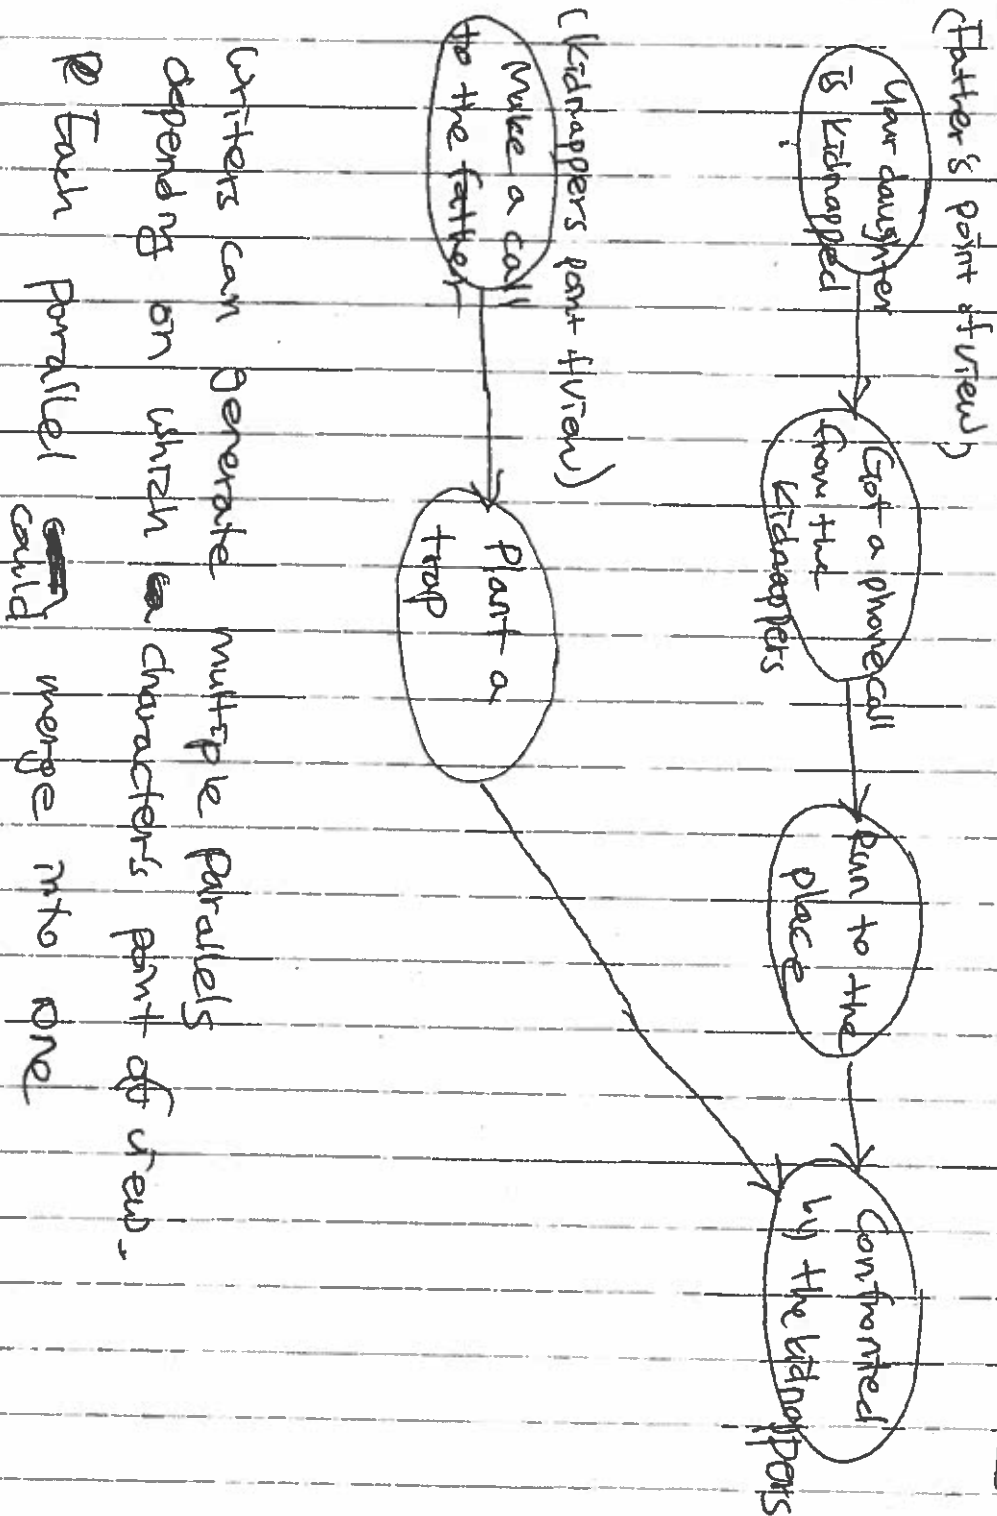 (Father's point of view)
Your daughter
is kidnapped
Got a phone call
from the
kidnappers
Run to the
place
Confronted
by the kidnappers
(Kidnappers pont of view)
Make a call
to the father
Plant a
trap
Writers can generate multiple parallels
depending on which character's pont of view.
Each parallel could merge into one